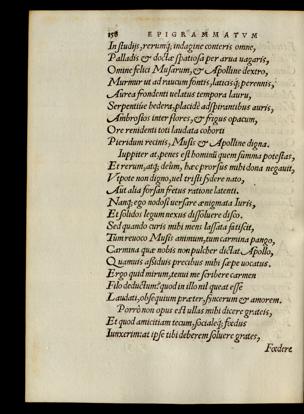 158 EPIGRAMMATVM
In studijs, rerumq; indagine conteris omne,
Palladis & doctæ spatiosa per arua uagaris,
Omine felici Musarum, & Apolline dextro,
Murmur ut ad raucum fontis, laticisq; perennis,
Aurea frondenti uelatus tempora lauru,
Serpentiue hedera, placidè adspirantibus auris,
Ambrosios inter flores, & frigus opacum,
Ore renidenti toti laudata cohorti
Pieridum recinis, Musis & Apolline digna.
Iuppiter at, penes est hominū quem summa potestas,
Et rerum, atq; deûm, hæc prorsus mihi dona negauit,
Vtpote non digno, uel tristi sydere nato,
Aut alia forsan fretus ratione latenti.
Nanq; ego nodosi uersare ænigmata Iuris,
Et solidos legum nexus dissoluere disco.
Sed quando curis mihi mens lassata fatiscit,
Tum reuoco Musis animum, tum carmina pango,
Carmina quæ nobis non pulcher dictat Apollo,
Quamuis assiduis precibus mihi sæpe uocatus.
Ergo quid mirum, tenui me scribere carmen
Filo deductum? quod in illo nil queat esse
Laudati, obsequium præter, syncerum & amorem.
Porrò non opus est ullas mihi dicere grateis,
Et quod amicitiam tecum, socialeq; fœdus
Iunxerim: at ipse tibi deberem soluere grates,
Fœdere